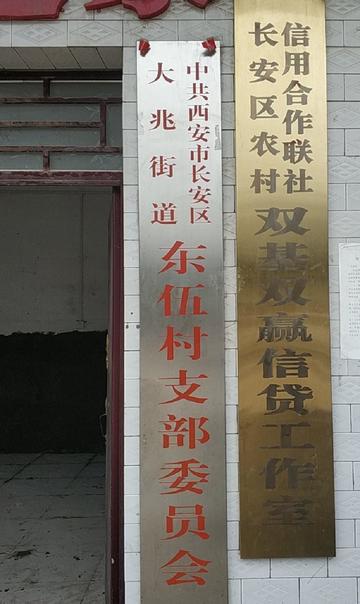 中共西安市长安区
大兆街道
东伍村支部委员会
信用合作联社
长安区农村
双基双赢信贷工作室